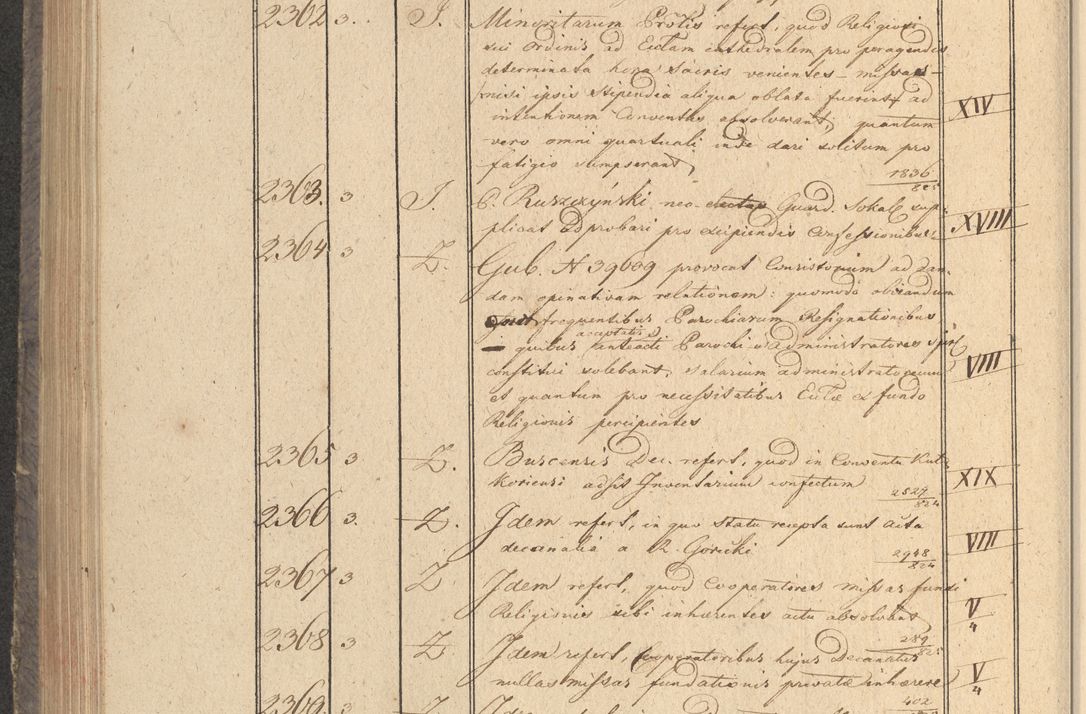 2362 3. J. Minoritarum Prōlis refert, quod Religiosi
sui ordinis ad Ecclam cathedralem pro peragendis
determinata hora sacris venientes missas
nisi ipsis stipendia aliqua oblata fuerint ad
XIV
intentionem Conventus absolverant, quantum
vero omni quartuali inde dari solitum pro
fatigio sumpserant,
1836
825
2363. 3 J. P. Ruszczyński neo- Guard. Sokal sup-
plicat adprobari pro excipiendis Confessionibus
XVIII
2364 3 Z. Gub. N 39609 provocat Consistorium ad dan-
dam opinativam relationem: quomodo obviandum
frequentibus Parochiarum Resignationibus
acceptatis
quibus anteacti Parochi administratores
VIII
constitui solebant, salarium administratorum
et quantum pro necessitatibus Eclæ ex fundo
Religionis percipientes
2365 3 Z. Buscensis Dec. refert, quod in Conventu Kut-
koriensi adsit Inventarium confectum
XIX
2527
824
2366 3. Z. Idem refert, in quo statu recepta sunt acta
decanalia a R. Goricki
VIII
2948
824
2367 3 Z Idem refert, quod Cooperatores missas fundi
Religionis sibi inhærentes actu absolvant
V
4
289
825
2368 3 Z Idem refert, Cooperatoribus hujus Decanatus
nullas missas fundationis privatæ inhærere
V
4
402
2369. 3 Z Idem